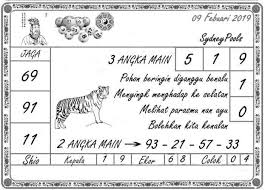 09 Febuari 2019
SydneyPools
JAGA
3 ANGKA MAIN 5 1 9
69
91
11
Pohon beringin diganggu benalu
Menyingk menghadap ke selatan
Melihat parasma nan ayu
Bolehkan kita kenalan
2 ANGKA MAIN → 93 - 21 - 57 - 33
Shio Kepala 1 9 Ekor 6 8 Colok 0 4